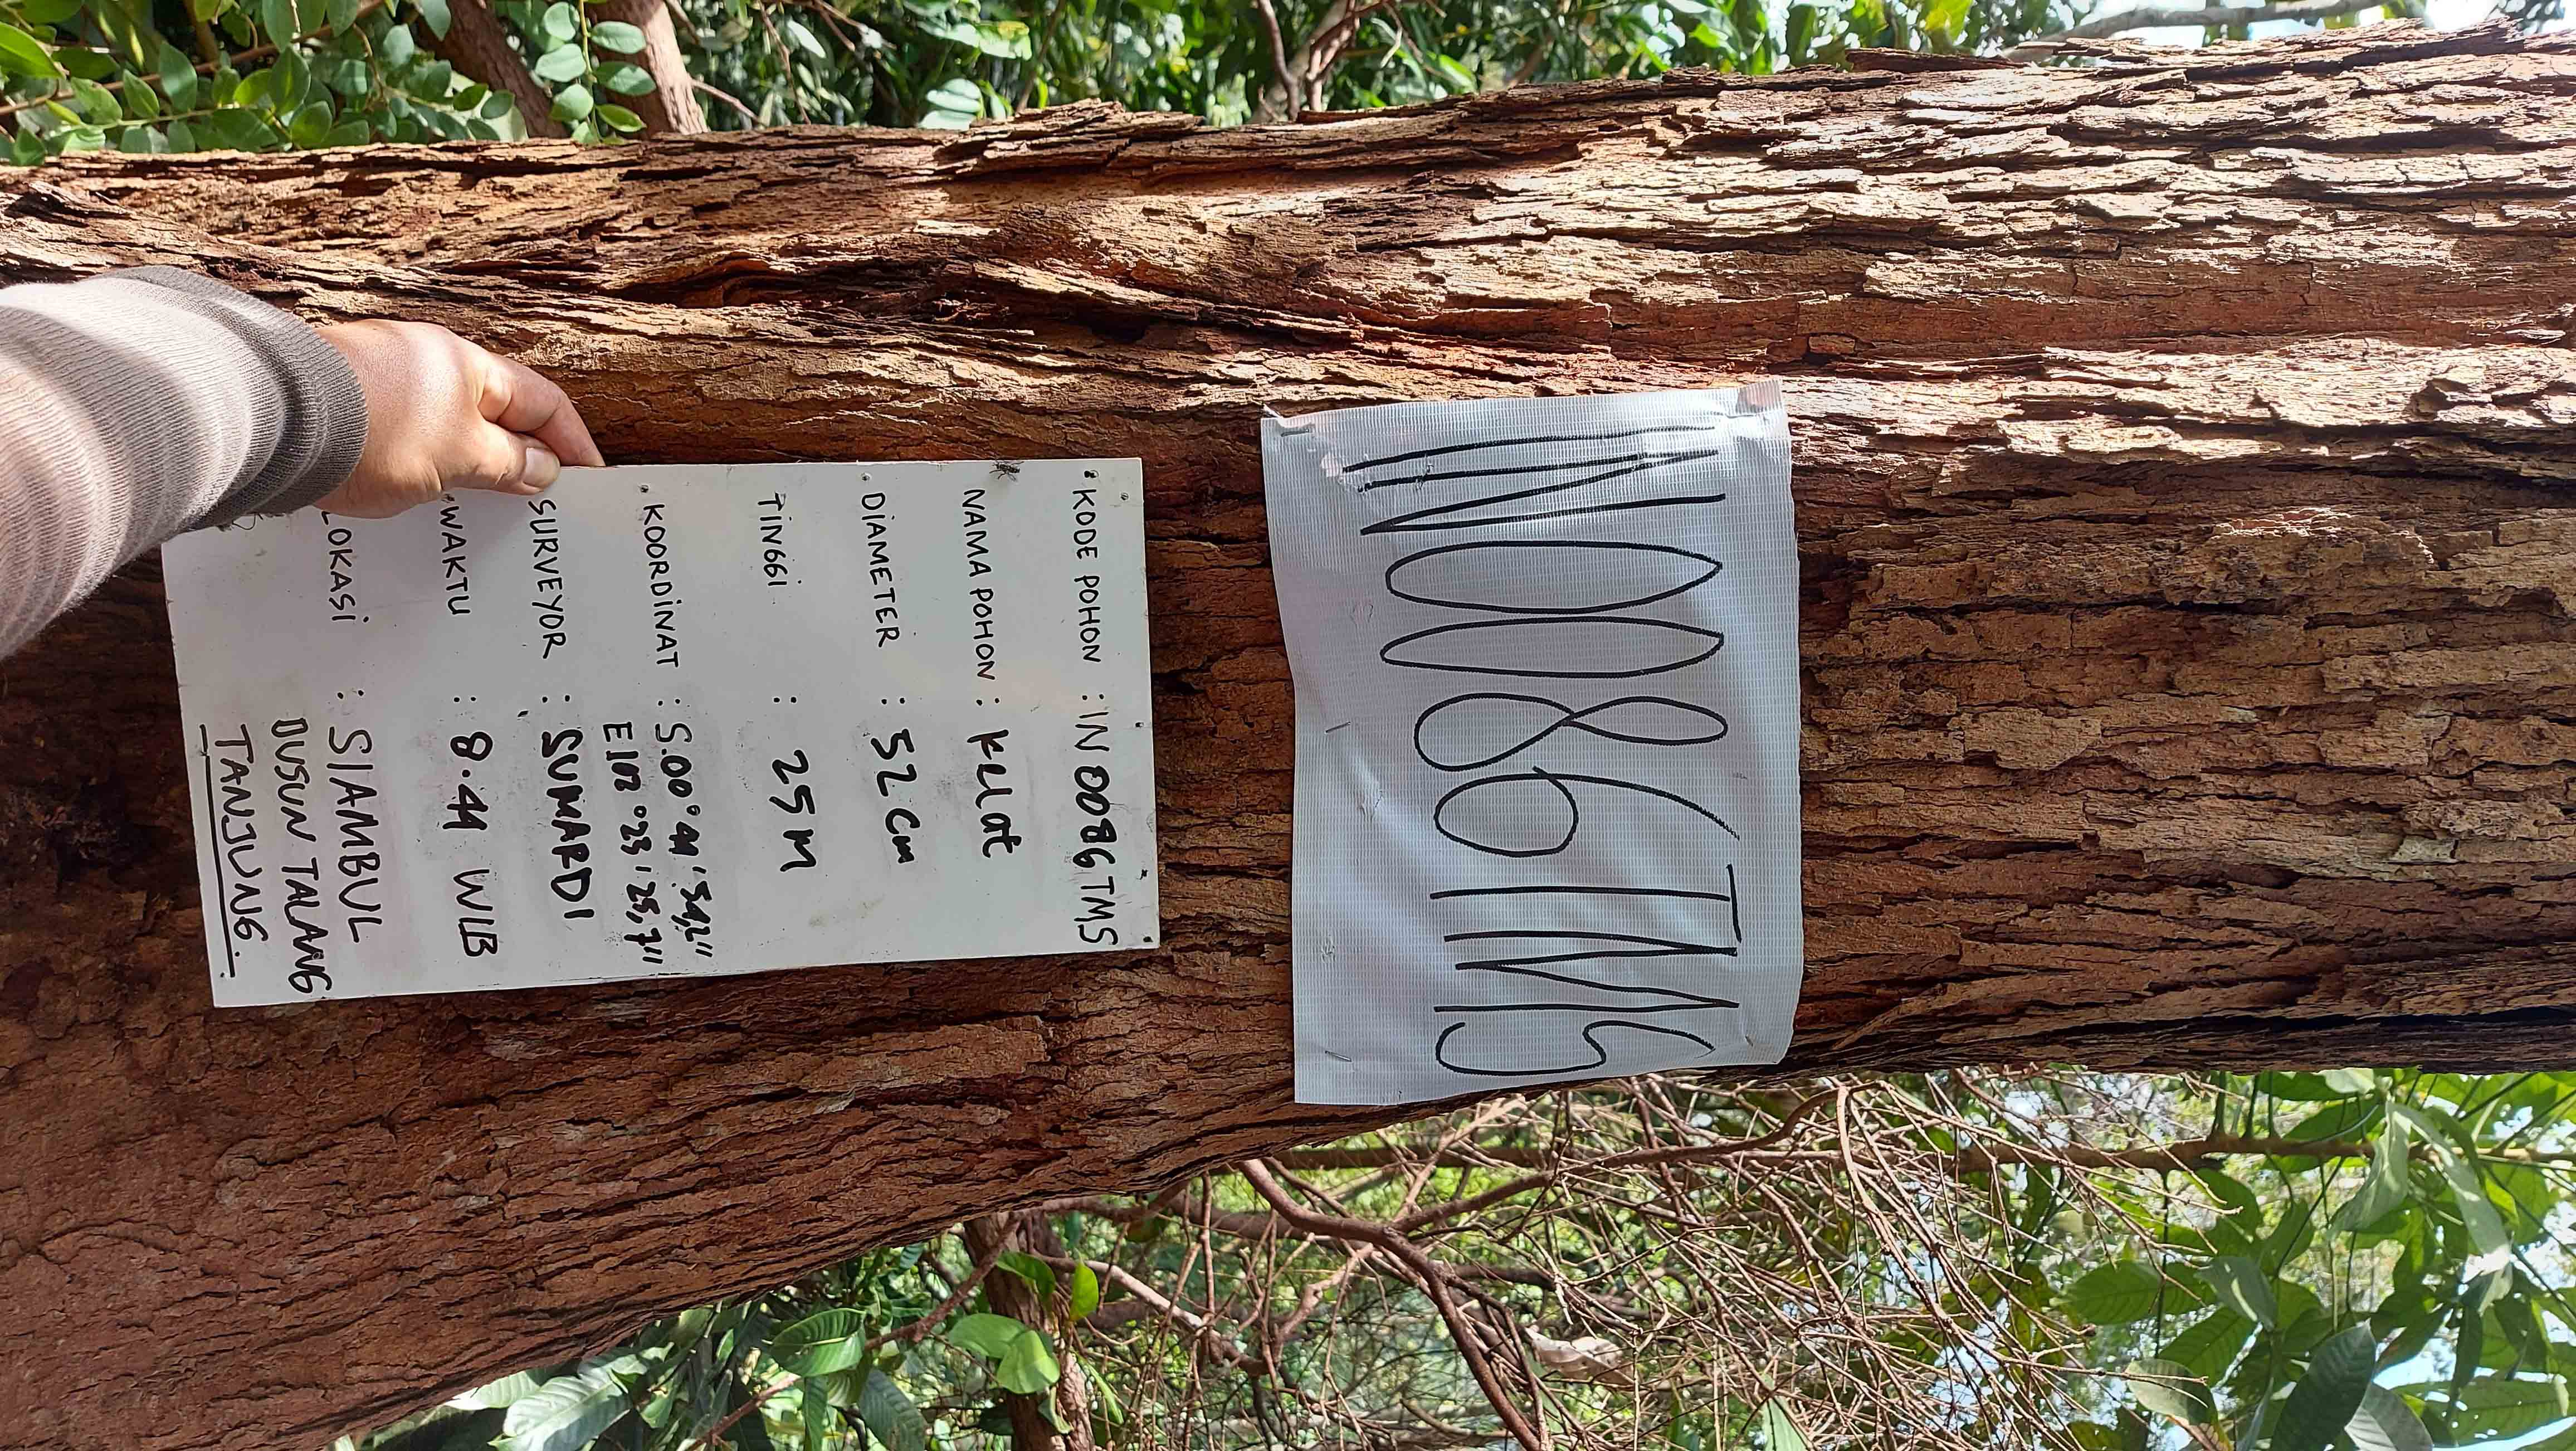 IN0086TMS
KODE POHON : IN 0086 TMS
NAMA POHON : Kelat
DIAMETER : 52 Cm
TINGGI : 25 M
KOORDINAT : S.00° 41' 54,2"
E 102° 23' 25,7"
SURVEYOR : SUMARDI
WAKTU : 8.44 WIB
LOKASI : SIAMBUL
DUSUN TALANG
TANJUNG.